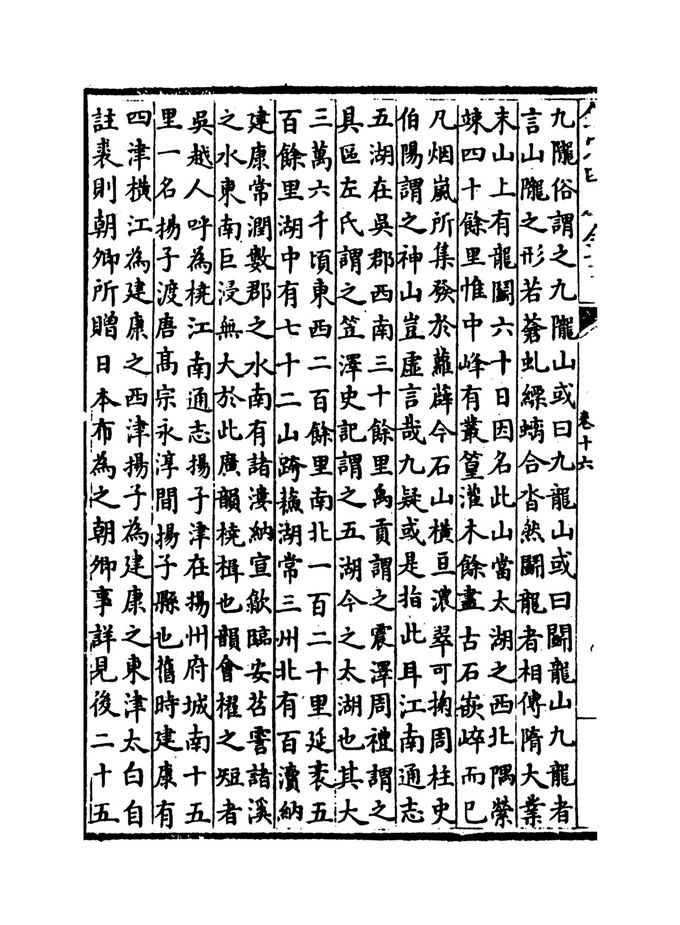 九隴俗謂之九隴山或曰九龍山或曰鬭龍山九龍者
言山隴之形若蒼虬縹螭合沓然鬭龍者相傳隋大業
末山上有龍鬭六十日因名此山當太湖之西北隅縈
竦四十餘里惟中峰有叢篁灌木餘盡古石嵌崒而已
凡烟嵐所集發於蘿薜今石山橫亘濃翠可掬周柱史
伯陽謂之神山豈虛言哉九疑或是指此耳江南通志
五湖在吳郡西南三十餘里禹貢謂之震澤周禮謂之
具區左氏謂之笠澤史記謂之五湖今之太湖也其大
三萬六千頃東西二百餘里南北一百二十里延袤五
百餘里湖中有七十二山跨蘓湖常三州北有百瀆納
建康常潤數郡之水南有諸漊納宣歙臨安苕霅諸溪
之水東南巨浸無大於此廣韻橈楫也韻會櫂之短者
吳越人呼為橈江南通志揚子津在揚州府城南十五
里一名揚子渡唐髙宗永淳間揚子縣也舊時建康有
四津橫江為建康之西津揚子為建康之東津太白自
註裘則朝卿所贈日本布為之朝卿事詳見後二十五
卷十六